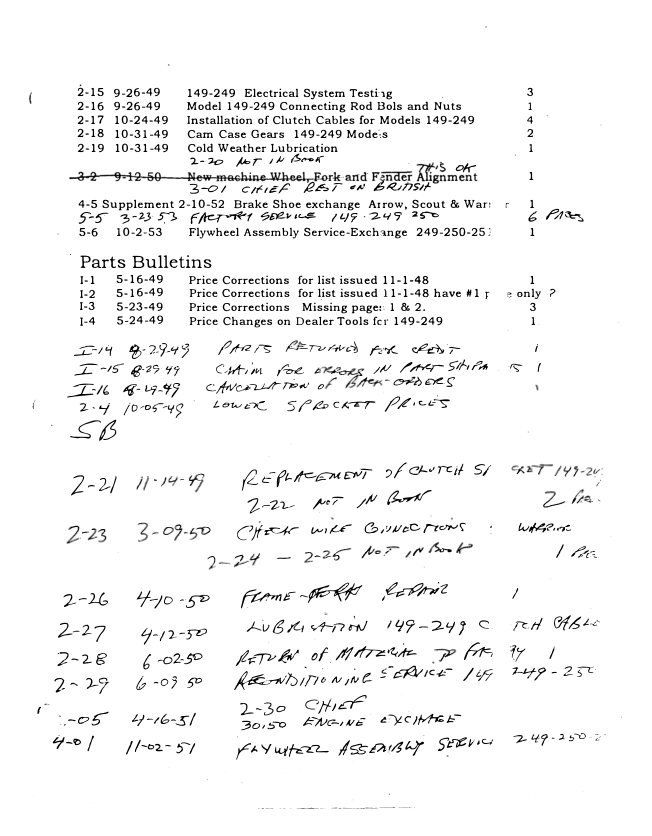 2-15 9-26-49 149-249 Electrical System Testing 3
2-16 9-26-49 Model 149-249 Connecting Rod Bols and Nuts 1
2-17 10-24-49 Installation of Clutch Cables for Models 149-249 4
2-18 10-31-49 Cam Case Gears 149-249 Models 2
2-19 10-31-49 Cold Weather Lubrication 1
2-20 NOT IN BOOK
THIS OK
3-2 9-12-50 New machine Wheel, Fork and Fender Alignment 1
3-01 CHIEF REST ON BRITISH
4-5 Supplement 2-10-52 Brake Shoe exchange Arrow, Scout & War r 1
5-5 3-23 53 FACTORY SERVICE 149-249 250 6 PAGES
5-6 10-2-53 Flywheel Assembly Service-Exchange 249-250-25 1
Parts Bulletins
I-1 5-16-49 Price Corrections for list issued 11-1-48 1
I-2 5-16-49 Price Corrections for list issued 11-1-48 have #1 p e only ?
I-3 5-23-49 Price Corrections Missing pages 1 & 2. 3
I-4 5-24-49 Price Changes on Dealer Tools for 149-249 1
I-14 8-29-49 PARTS RETURNED FOR CREDIT 1
I-15 8-29 49 CLAIM FOR ERRORS IN PART SHIPM TS 1
I-16 8-29-49 CANCELLATION OF BACK-ORDERS 1
2-4 10-05-49 LOWER SPROCKET PRICES
SB
2-21 11-14-49 REPLACEMENT OF CLUTCH S CKET 149-24
2-22 NOT IN BOOK 2 PAG.
2-23 3-09-50 CHECK WIRE CONNECTIONS : WARRIOR
2-24 - 2-25 NOT IN BOOK 1 PAG
2-26 4-10-50 FRAME-FORK REPAIR 1
2-27 4-12-50 LUBRICATION 149-249 C TCH CABLE
2-28 6-02-50 RETURN OF MATERIAL TO FAC RY 1
2-29 6-09 50 RECONDITIONING SERVICE 149 249-250
2-30 CHIEF
-05 4-16-51 30.50 ENGINE EXCHAGE
4-01 11-02-51 FLYWHEEL ASSEMBLY SERVIC 249-250-2